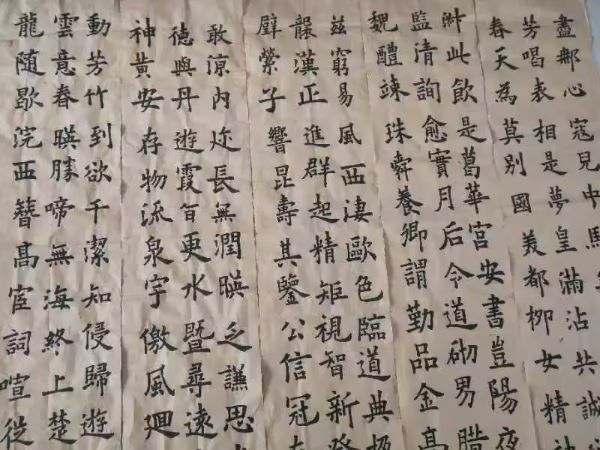 盡鄰心寇見中馬
芳唱表相是夢皇滿沾共誠
春天為莫別國羡都柳女精
此飲是葛華宮安書豈陽夜
監清詢愈實月后令道砌男腊
魏醴竦珠舜養卿謂勤品金高
茲窮易風西淒歐色臨道典
漢正進群起精矩視智新
壁縈子響昆壽其鑒公信冠
敢涼內迩長無潤暎之謙思
德與丹遊霞旨更水暨尋遠
神黃安存物流泉宇儌風廻
動芳竹到欲千潔知侵歸遊
雲意春暎勝啼無海終上楚
龍隨歇浣西簪高宦詞喧從